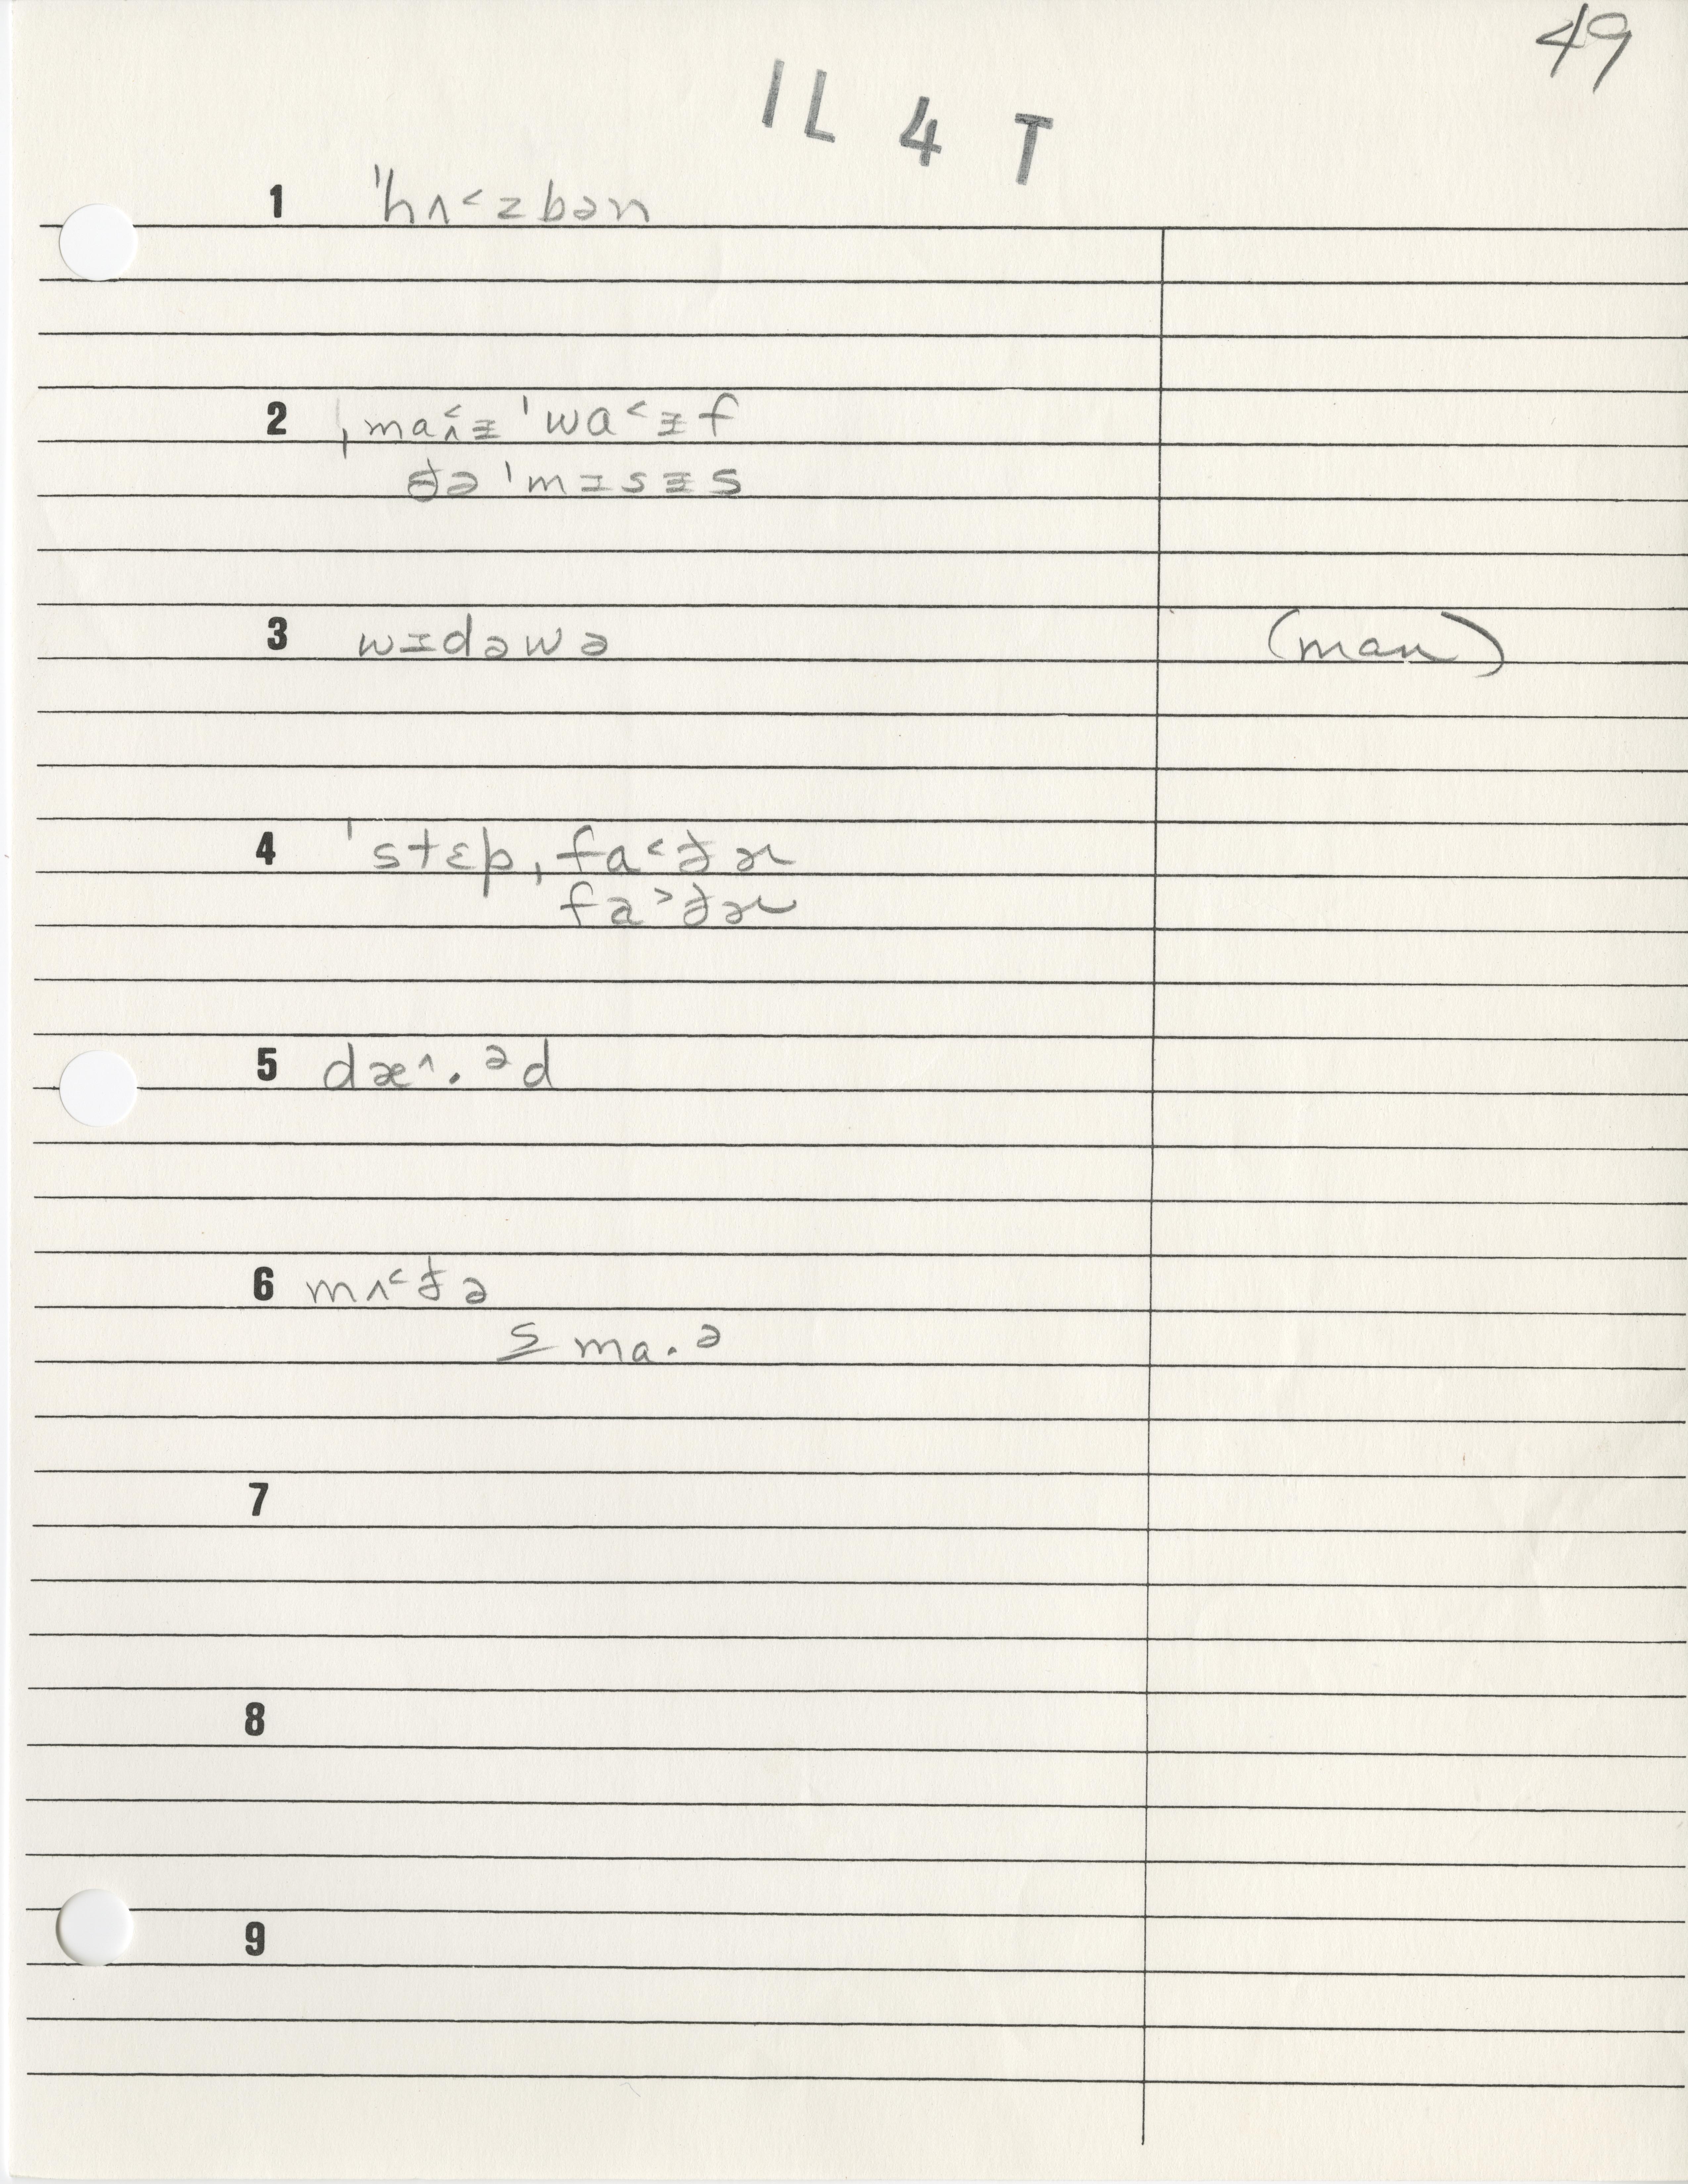 49
1L 4 T
1 ˈhʌ˂zbən
2 ˌmaˬ˄ᵻ ˈwa˂ɪf
ðə ˈmɪsᵻs
3 wɪdəwə (man)
4 ˈstɛpˌfa˂ðɚ
fa˃ðɚ
5 dæ^.ᵊd
6 mʌ˂ðə
S ma.ᵊ
7
8
9